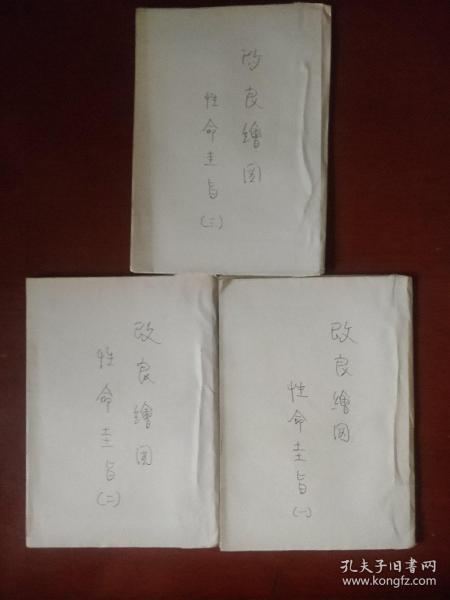 改良繪图
性命圭旨
(三)
改良繪图
性命圭旨
(二)
改良繪图
性命圭旨
(一)
孔夫子旧书网
www.kongfz.com